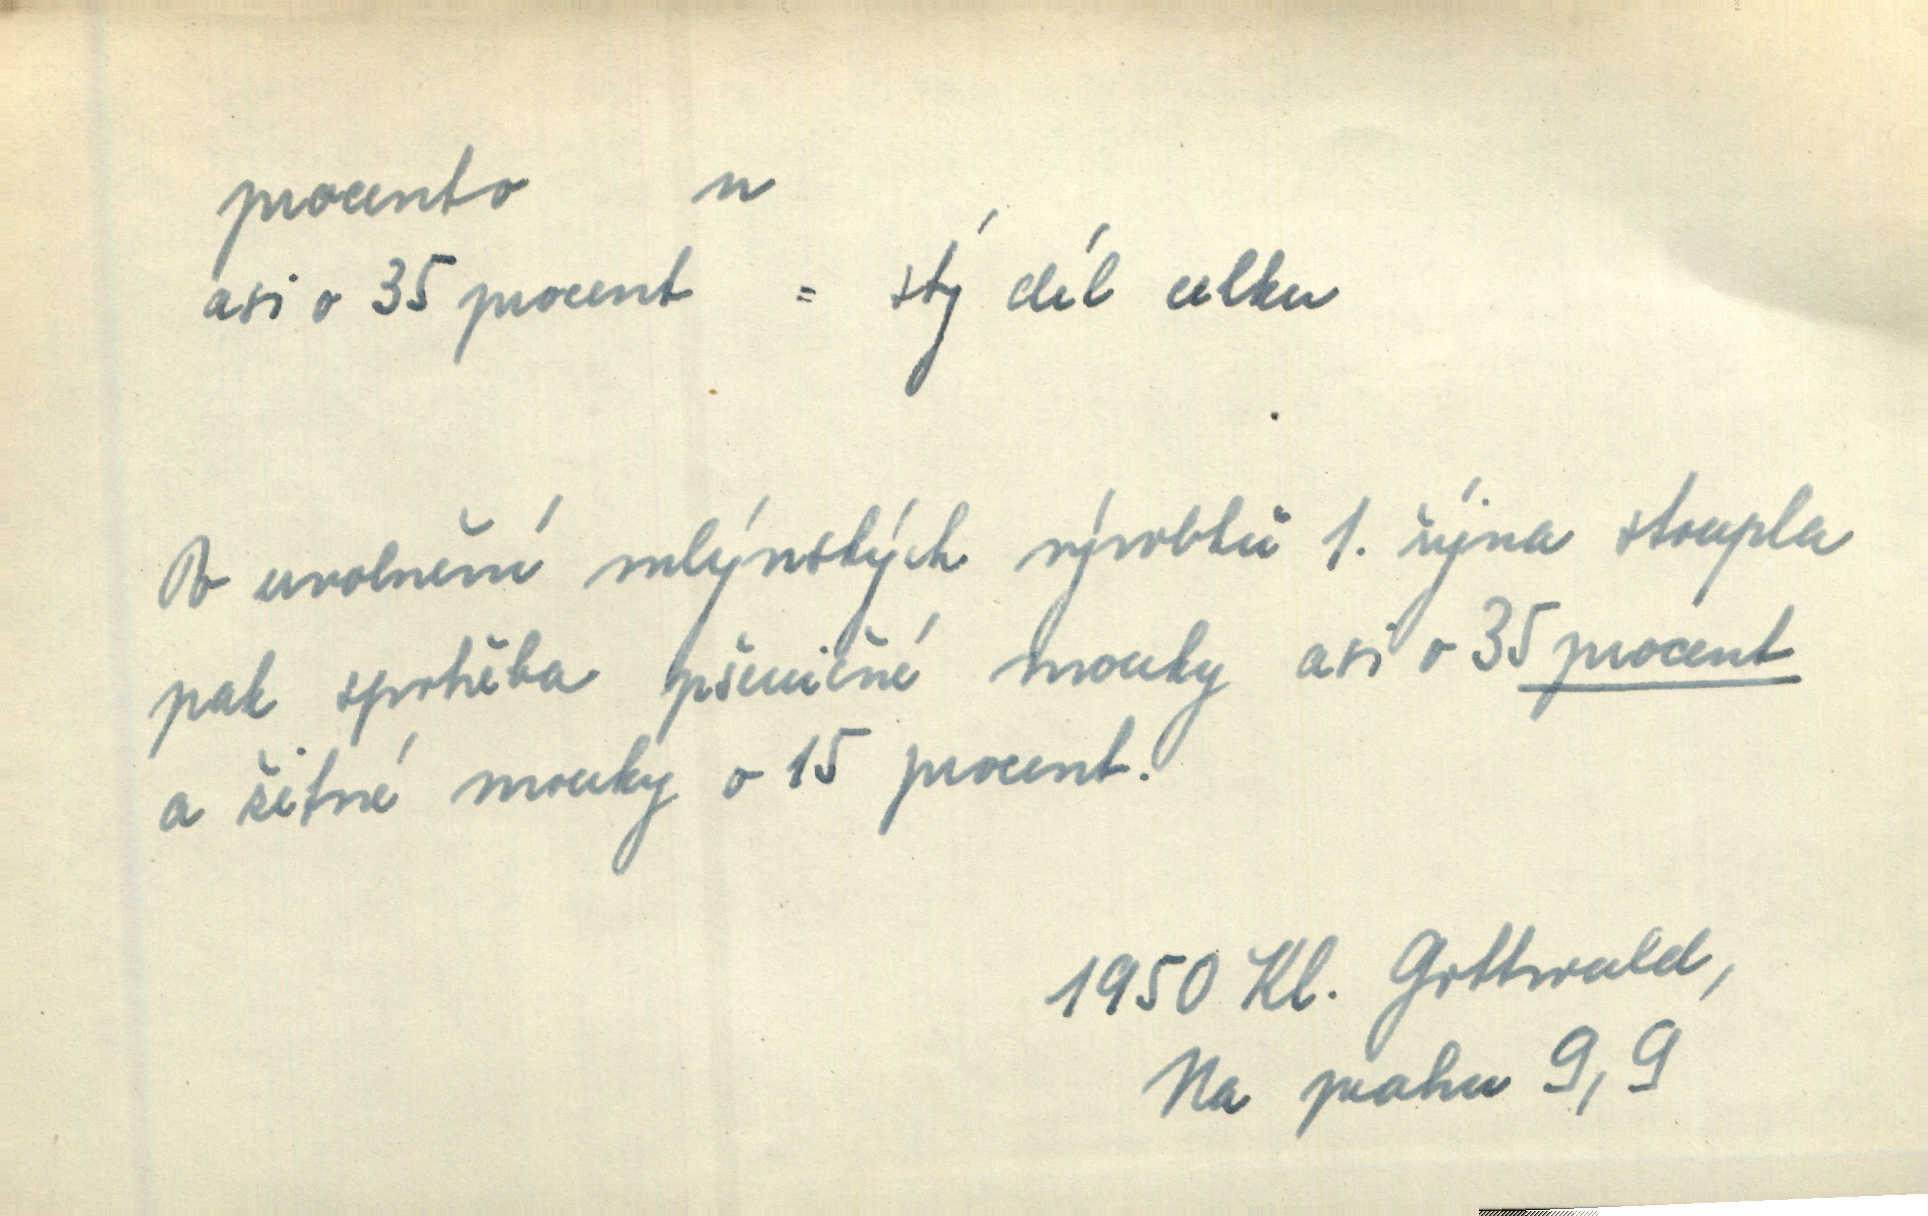 procento n
asi o 35 procent = stý díl celku
Po uvolnění mlýnských výrobků 1. října stoupla
pak spotřeba pšeničné mouky asi o 35 procent
a žitné mouky o 15 procent.
1950 Kl. Gottwald,
Na prahu 9, 9